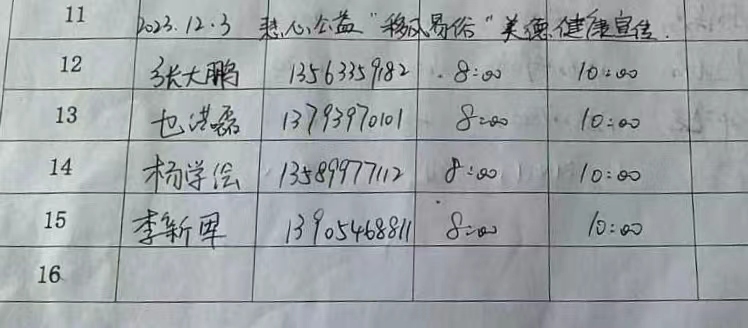 11 2023.12.3 慈心公益“移风易俗”美德健康宣传.
12 张大鹏 13563359182 8:00 10:00
13 也洪磊 13793970101 8:00 10:00
14 杨学绘 13589977112 8:00 10:00
15 李新军 13905468811 8:00 10:00
16